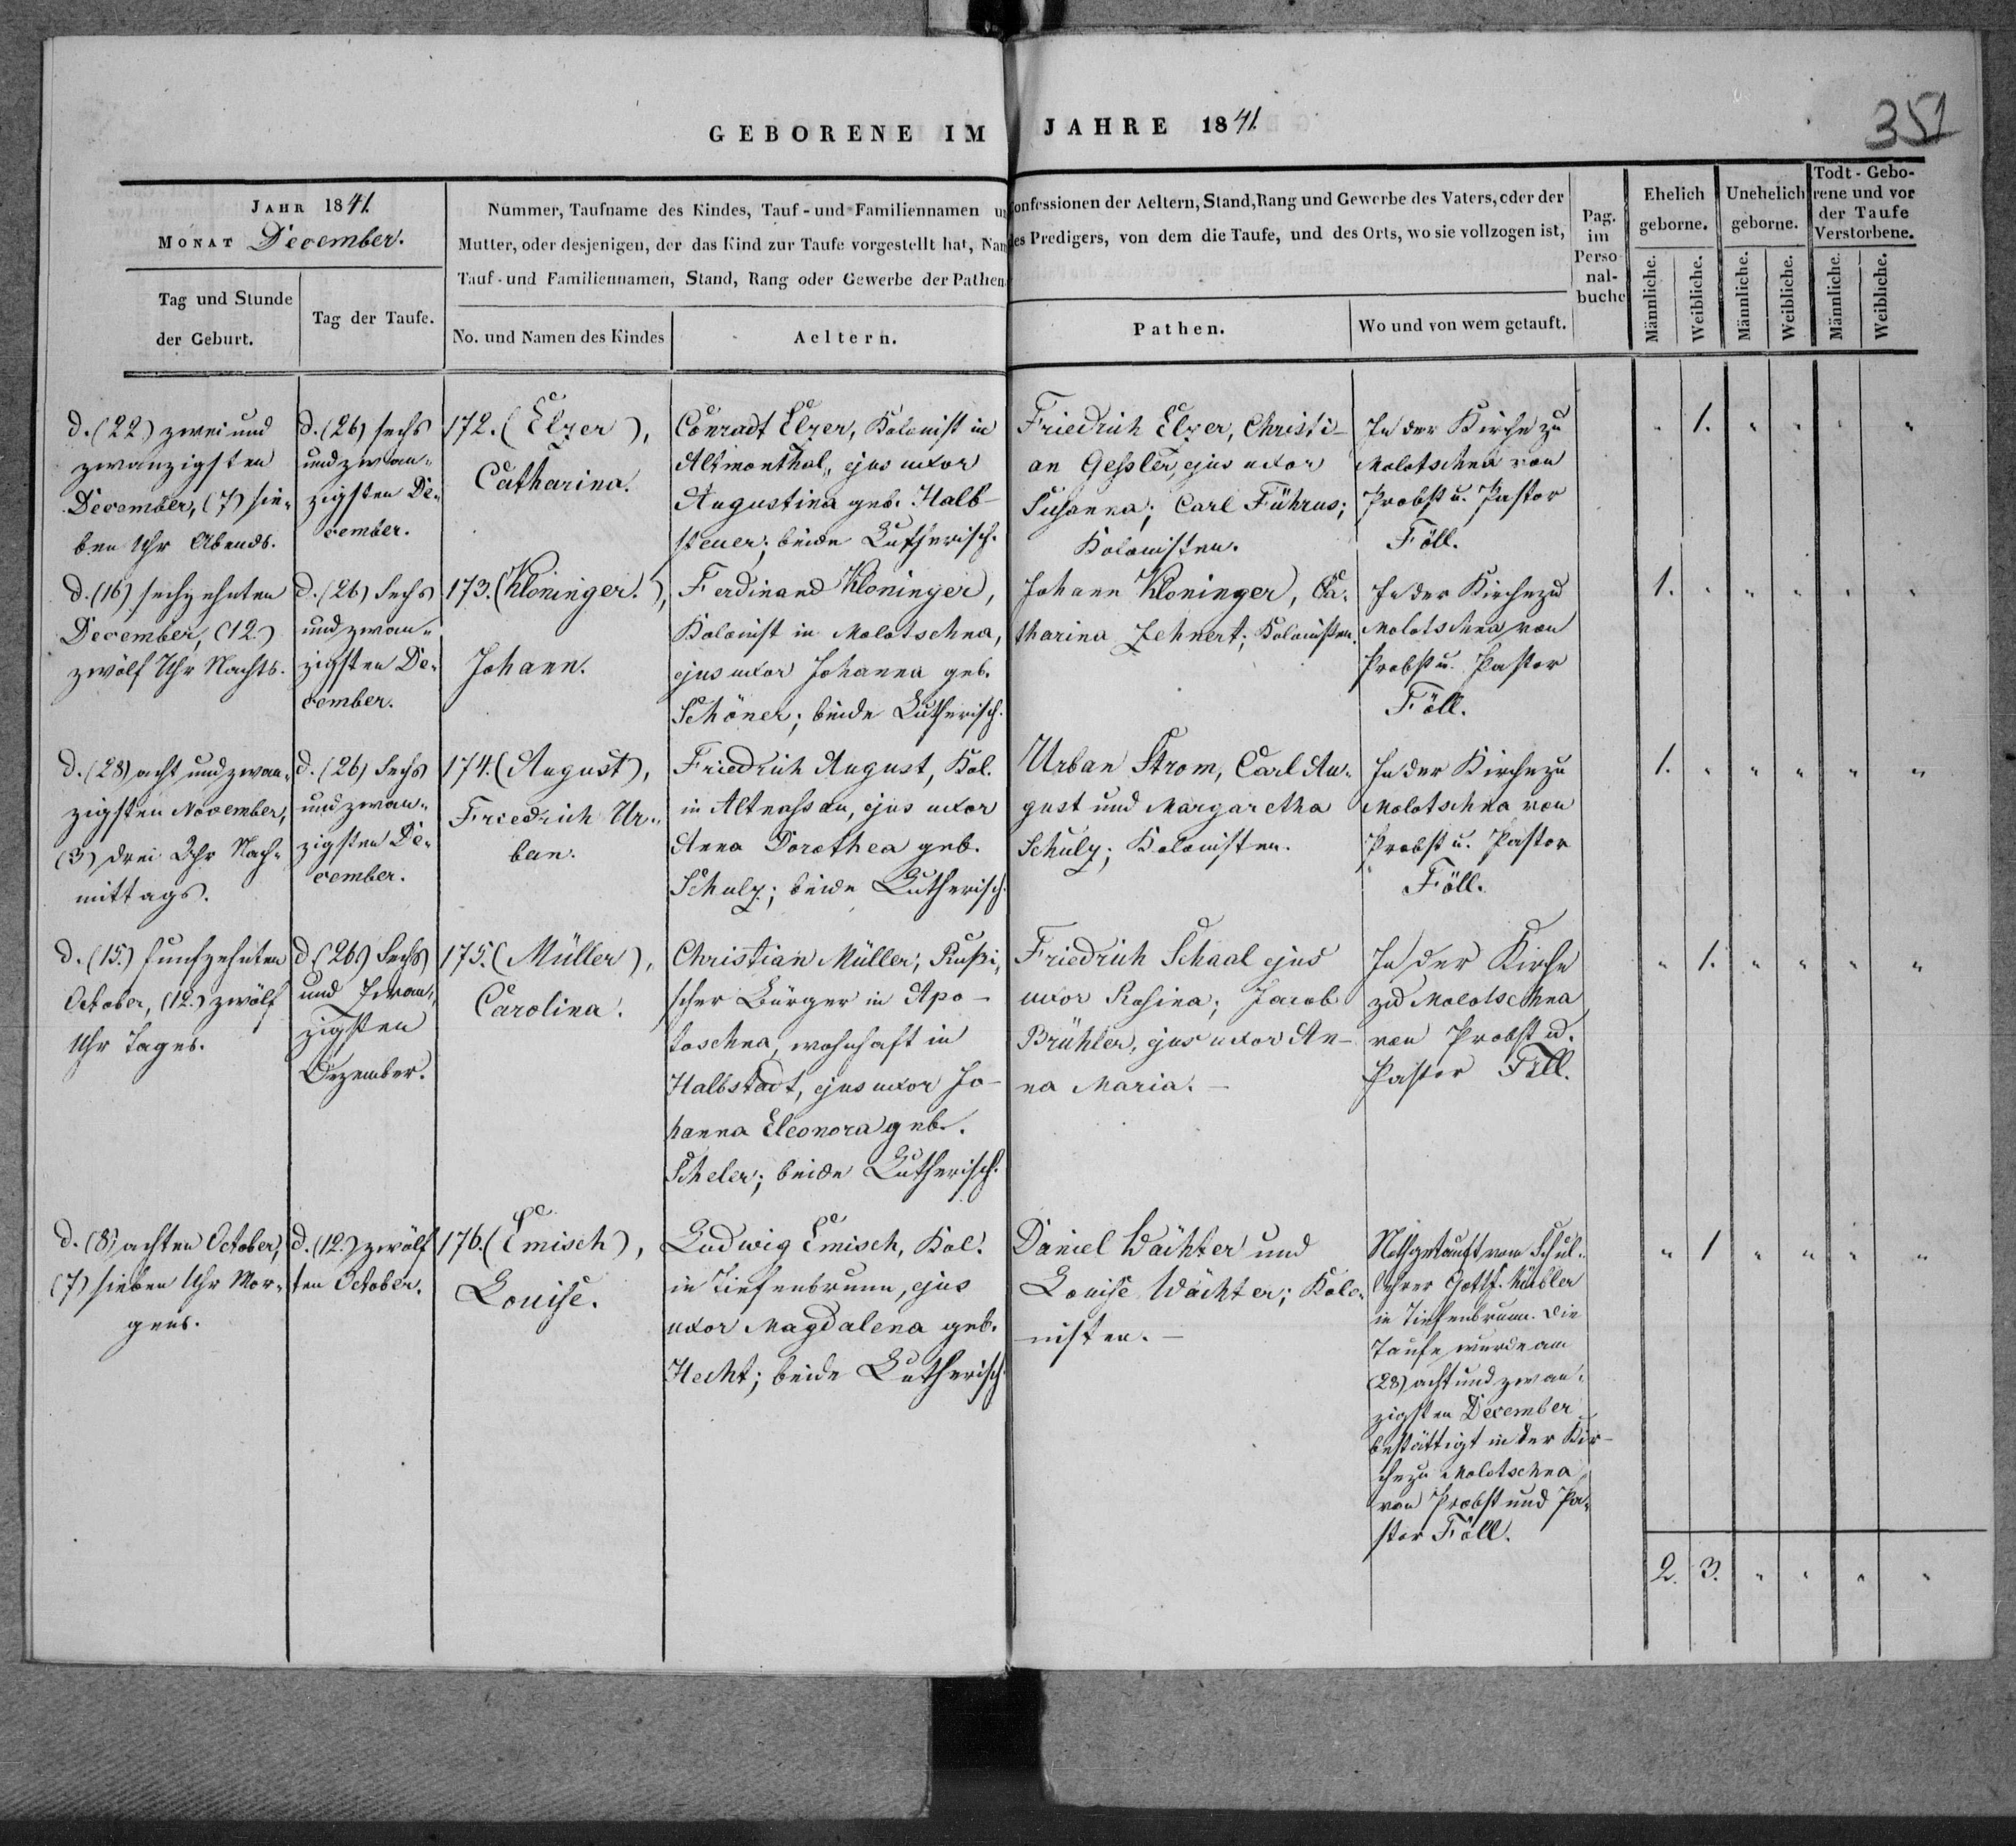 GEBORENE IM JAHRE 1841.
351
JAHR 1841.
MONAT December.
Tag und Stunde
der Geburt.
Tag der Taufe.
Nummer, Taufname des Kindes, Tauf- und Familiennamen
Confessionen der Aeltern, Stand, Rang und Gewerbe des Vaters, oder der
Mutter, oder desjenigen, der das Kind zur Taufe vorgestellt hat,
des Predigers, von dem die Taufe, und des Orts, wo sie vollzogen ist,
Tauf- und Familiennamen, Stand, Rang oder Gewerbe der Pathen
No. und Namen des Kindes
Aeltern.
Pathen.
Wo und von wem getauft.
Pag.
im
Perso-
nal-
buche
Ehelich
geborne.
Unehelich
geborne.
Todt-Gebo-
rene und vor
der Taufe
Verstorbene.
Männliche.
Weibliche.
Männliche.
Weibliche.
Männliche.
Weibliche.
d. (22) zwei und
zwanzigsten
December, (7) sie-
ben Uhr Abends.
d. (26) sechs
und zwan-
zigsten De-
cember.
172. (Elzer),
Catharina.
Conradt Elzer, Kolonist in
Altmonthal, ejus uxor
Augustina geb. Halb-
steuer; beide Lutherisch.
Friedrich Elzer, Christi-
an Gessler, ejus uxor
Susanna; Carl Führus;
Kolonisten.
In der Kirche zu
Molotschna von
Probst u. Pastor
Föll.
" 1. " " " "
d. (16) sechzehnten
December, (12.)
zwölf Uhr Nachts.
d. (26) sechs
und zwan-
zigsten De-
cember.
173. (Kloninger.),
Johann.
Ferdinand Kloninger,
Kolonist in Molotschna,
ejus uxor Johanna geb.
Schöner; beide Lutherisch.
Johann Kloninger, Ca-
tharina Zehnert; Kolonisten.
In der Kirche zu
Molotschna von
Probst u. Pastor
Föll.
1. " " " " "
d. (28) acht und zwan-
zigsten November,
(3) drei Uhr Nach-
mittags.
d. (26) sechs
und zwan-
zigsten De-
cember.
174. (August),
Friedrich Ur-
ban.
Friedrich August, Kol.
in Altnassau, ejus uxor
Anna Dorothea geb.
Schulz; beide Lutherisch.
Urban Strom, Carl Au-
gust und Margaretha
Schulz; Kolonisten.
In der Kirche zu
Molotschna von
Probst u. Pastor
Föll.
1. " " " " "
d. (15.) funfzehnten
October, (12.) zwölf
Uhr Tages.
d. (26.) sechs
und zwan-
zigsten
Dezember.
175. (Müller),
Carolina.
Christian Müller, Russi-
scher Bürger in Apo-
toschna, wohnhaft in
Halbstadt, ejus uxor Jo-
hanna Eleonora geb.
Scheler; beide Lutherisch.
Friedrich Schaal ejus
uxor Rosina; Jacob
Brühler, ejus uxor An-
na Maria. -
In der Kirche
zu Molotschna
von Probst u.
Pastor Föll.
" 1. " " " "
d. (8) achten October,
(7) sieben Uhr Mor-
gens.
d. (12.) zwölf
ten October.
176. (Emisch),
Louise.
Ludwig Emisch, Kol.
in Tiefenbrunn, ejus
uxor Magdalena geb.
Hecht; beide Lutherisch.
Daniel Wächter und
Louise Wächter; Kolo-
nisten. -
Nothgetauft vom Schul-
lehrer Gottf.
in Tiefenbrunn. Die
Taufe wurde am
(28) acht und zwan-
zigsten December
bestättigt in der Kir-
che zu Molotschna
von Probst und Pa-
stor Föll.
" 1 " " " "
2. 3. " " " "